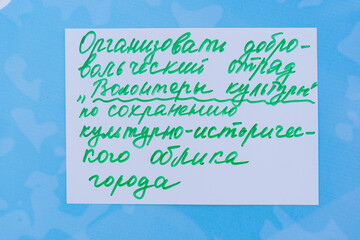 Организовать добро-
вольческий отряд
„Волонтеры культуры"
по сохранению
культурно-историчес-
кого облика
города